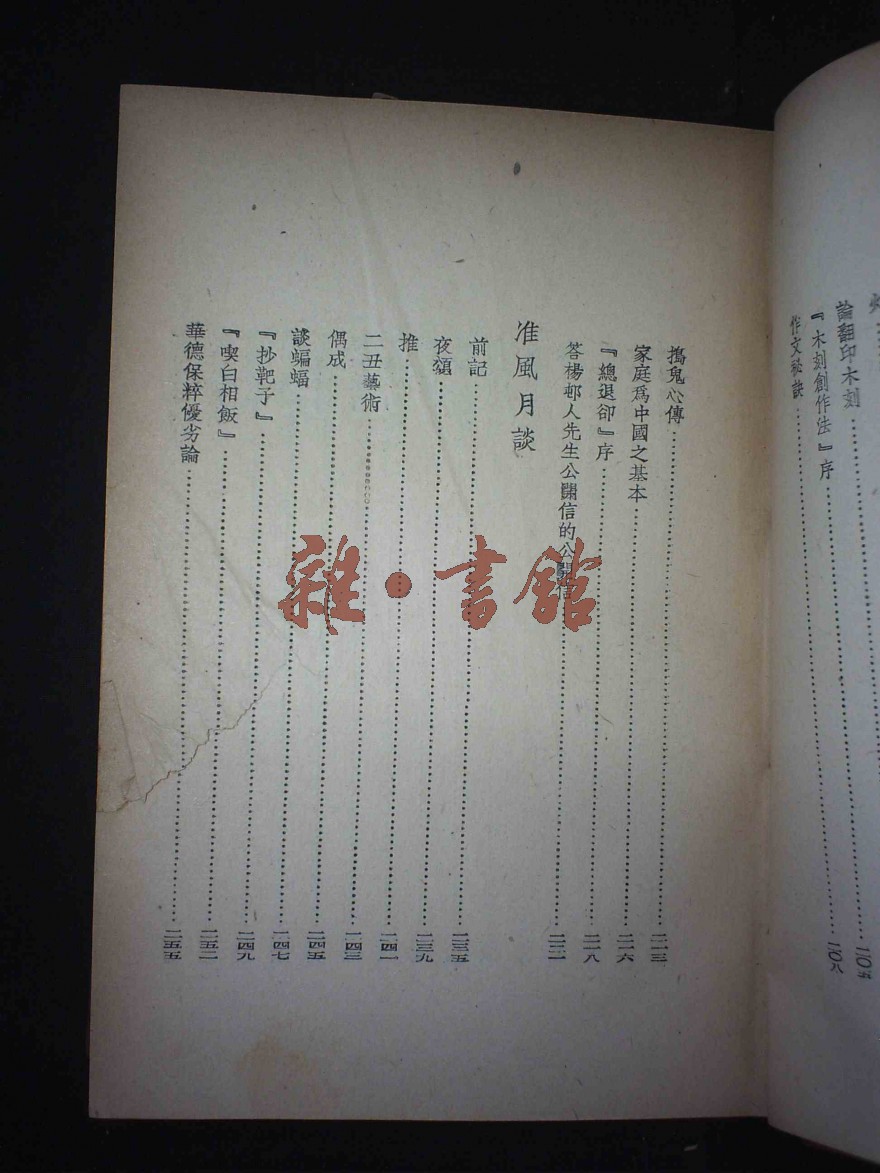 論翻印木刻……二〇五
『木刻創作法』序……二〇八
作文秘訣……
搗鬼心傳……二一三
家庭爲中國之基本……二一六
『總退卻』序……二一八
答楊邨人先生公開信的公開信……二二一
准風月談
前記……二三五
夜頌……二三九
推……二四一
二丑藝術……二四三
偶成……二四五
談蝙蝠……二四七
『抄靶子』……二四九
『喫白相飯』……二五二
華德保粹優劣論……二五五
雜·書館